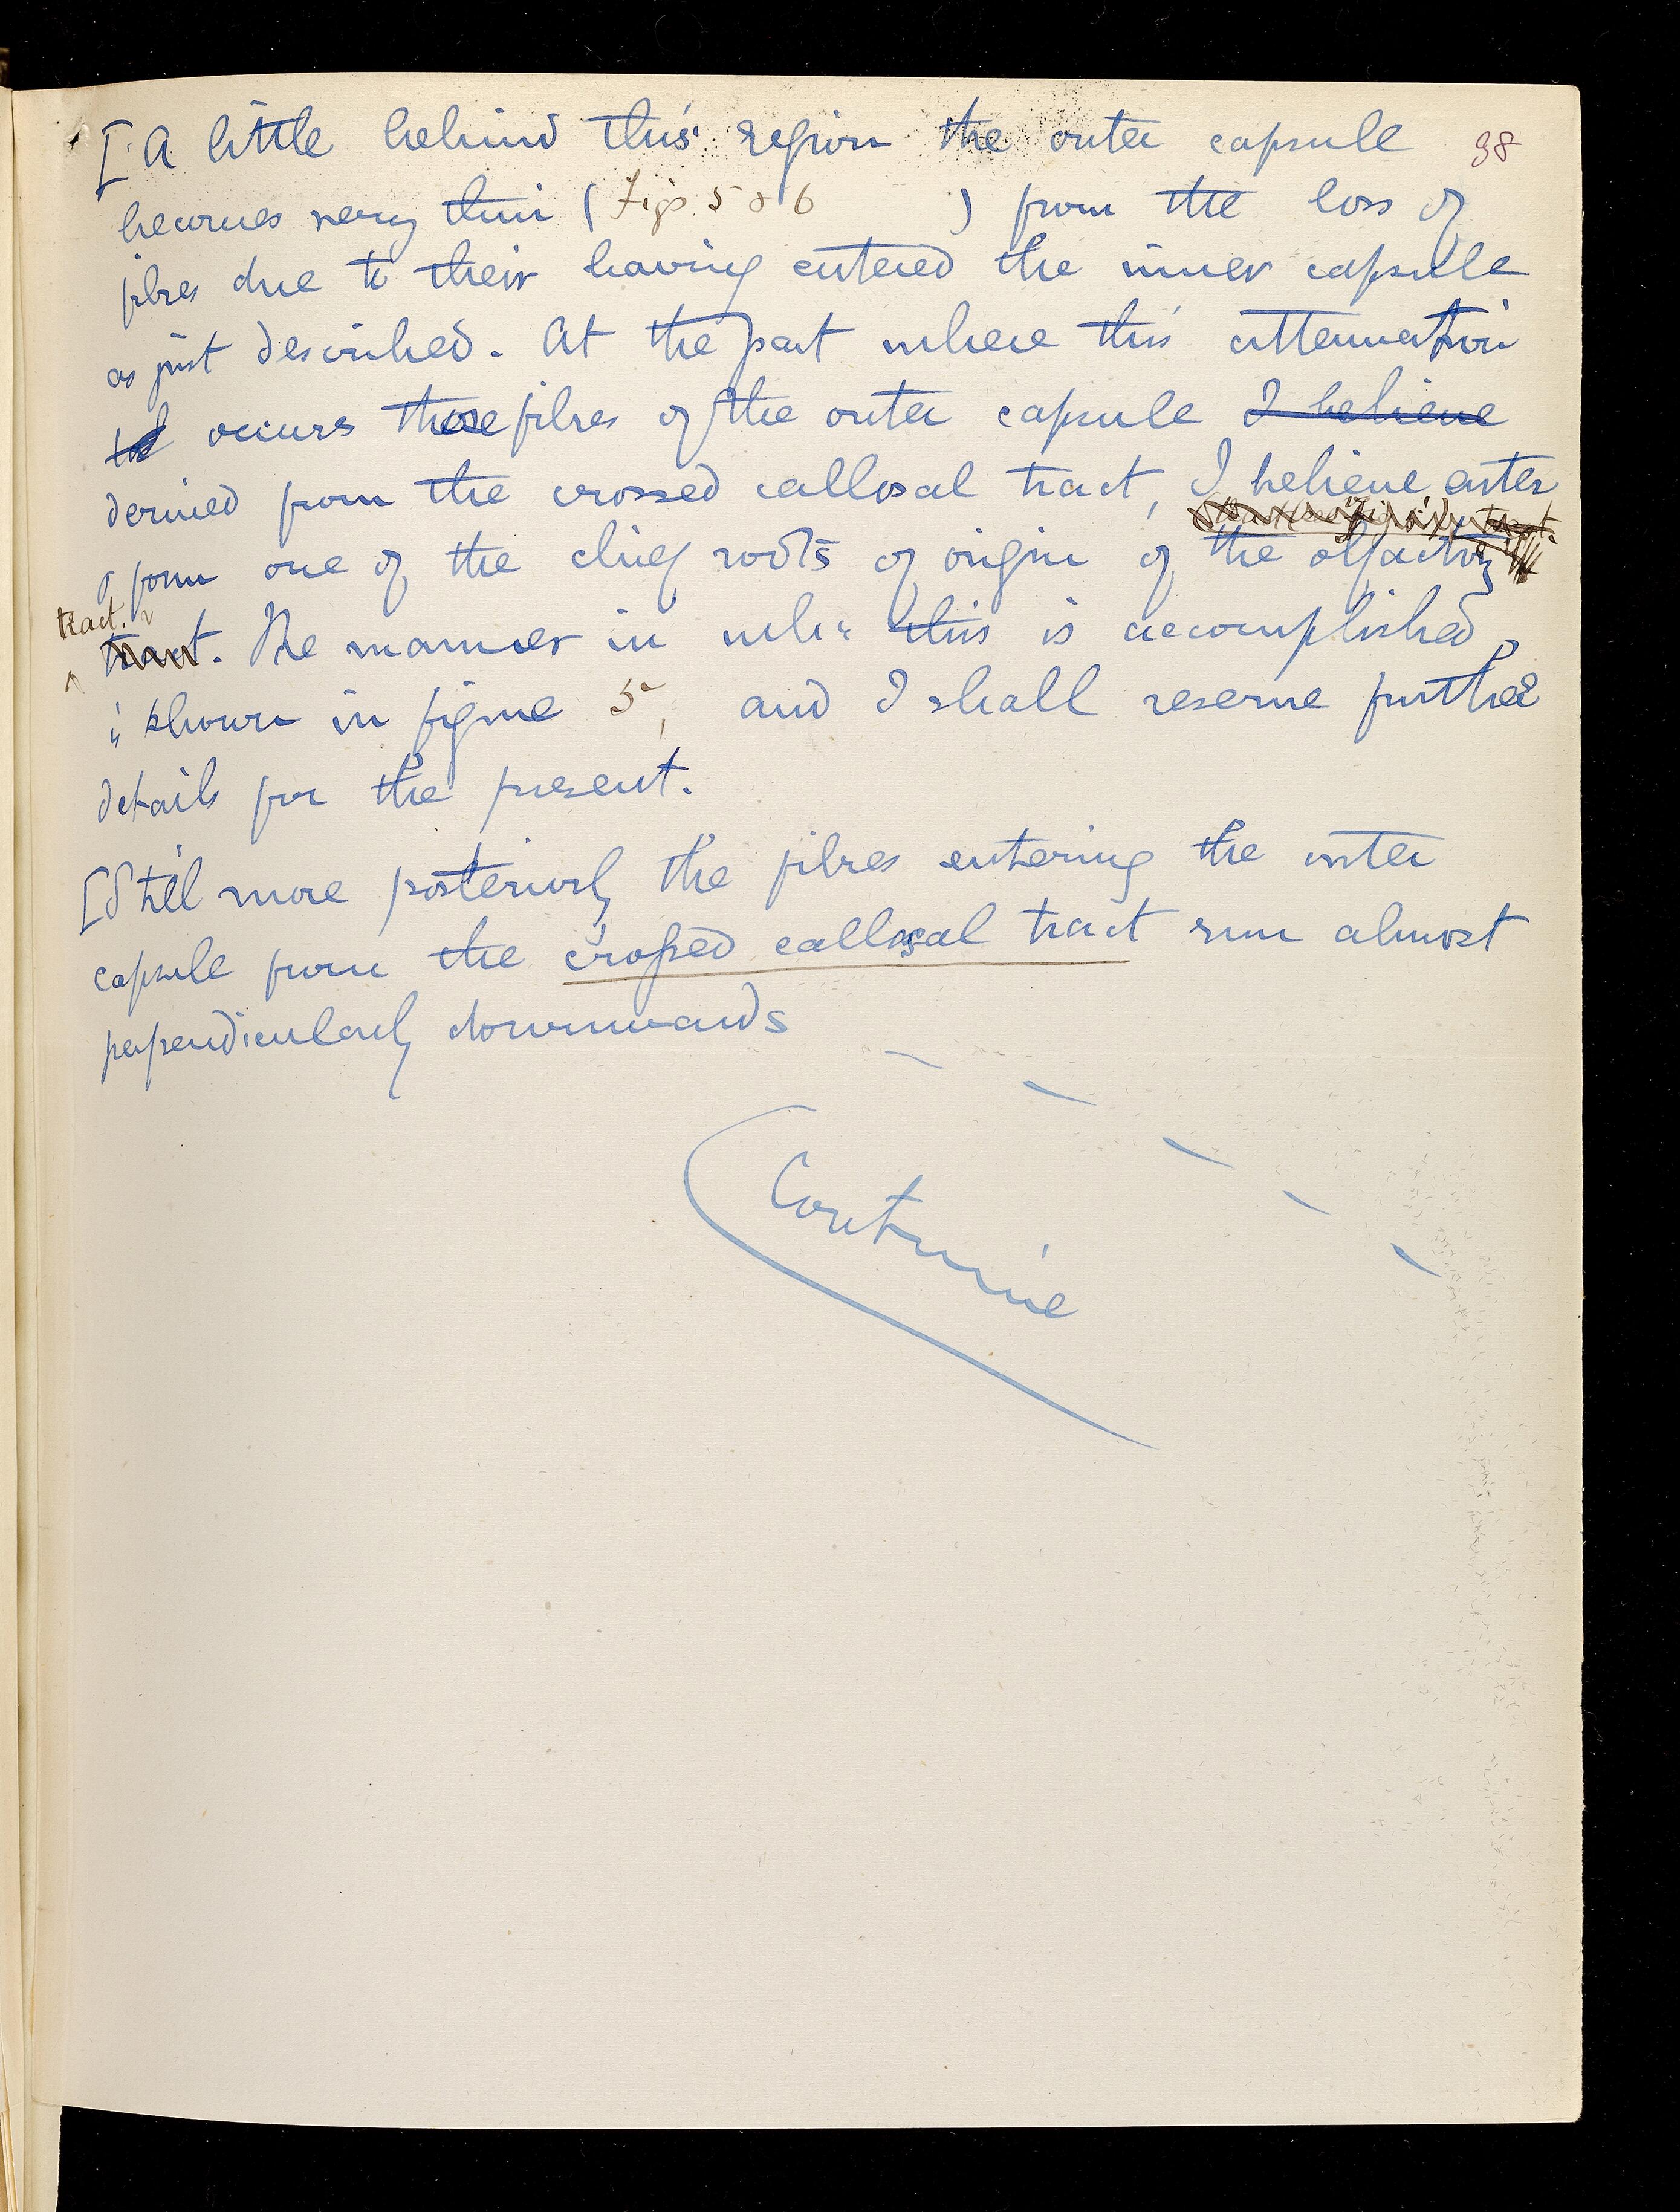 [A little behind this region the outer capsule 98
becomes very thin (Figs 5 & 6 ) from the loss of
fibres due to their having entered the inner capsule
as just described. At the part where this attenuation
occurs these fibres of the outer capsule I believe
derived from the crossed callosal tract, I believe enter
& form one of the chief roots of origin of the olfactory
tract.
tract. The manner in whc this is accomplished
is shown in figure 5, and I shall reserve further
details for the present.
[Still more posteriorly the fibres entering the outer
capsule from the crossed callosal tract run almost
perpendicularly downwards
Continue